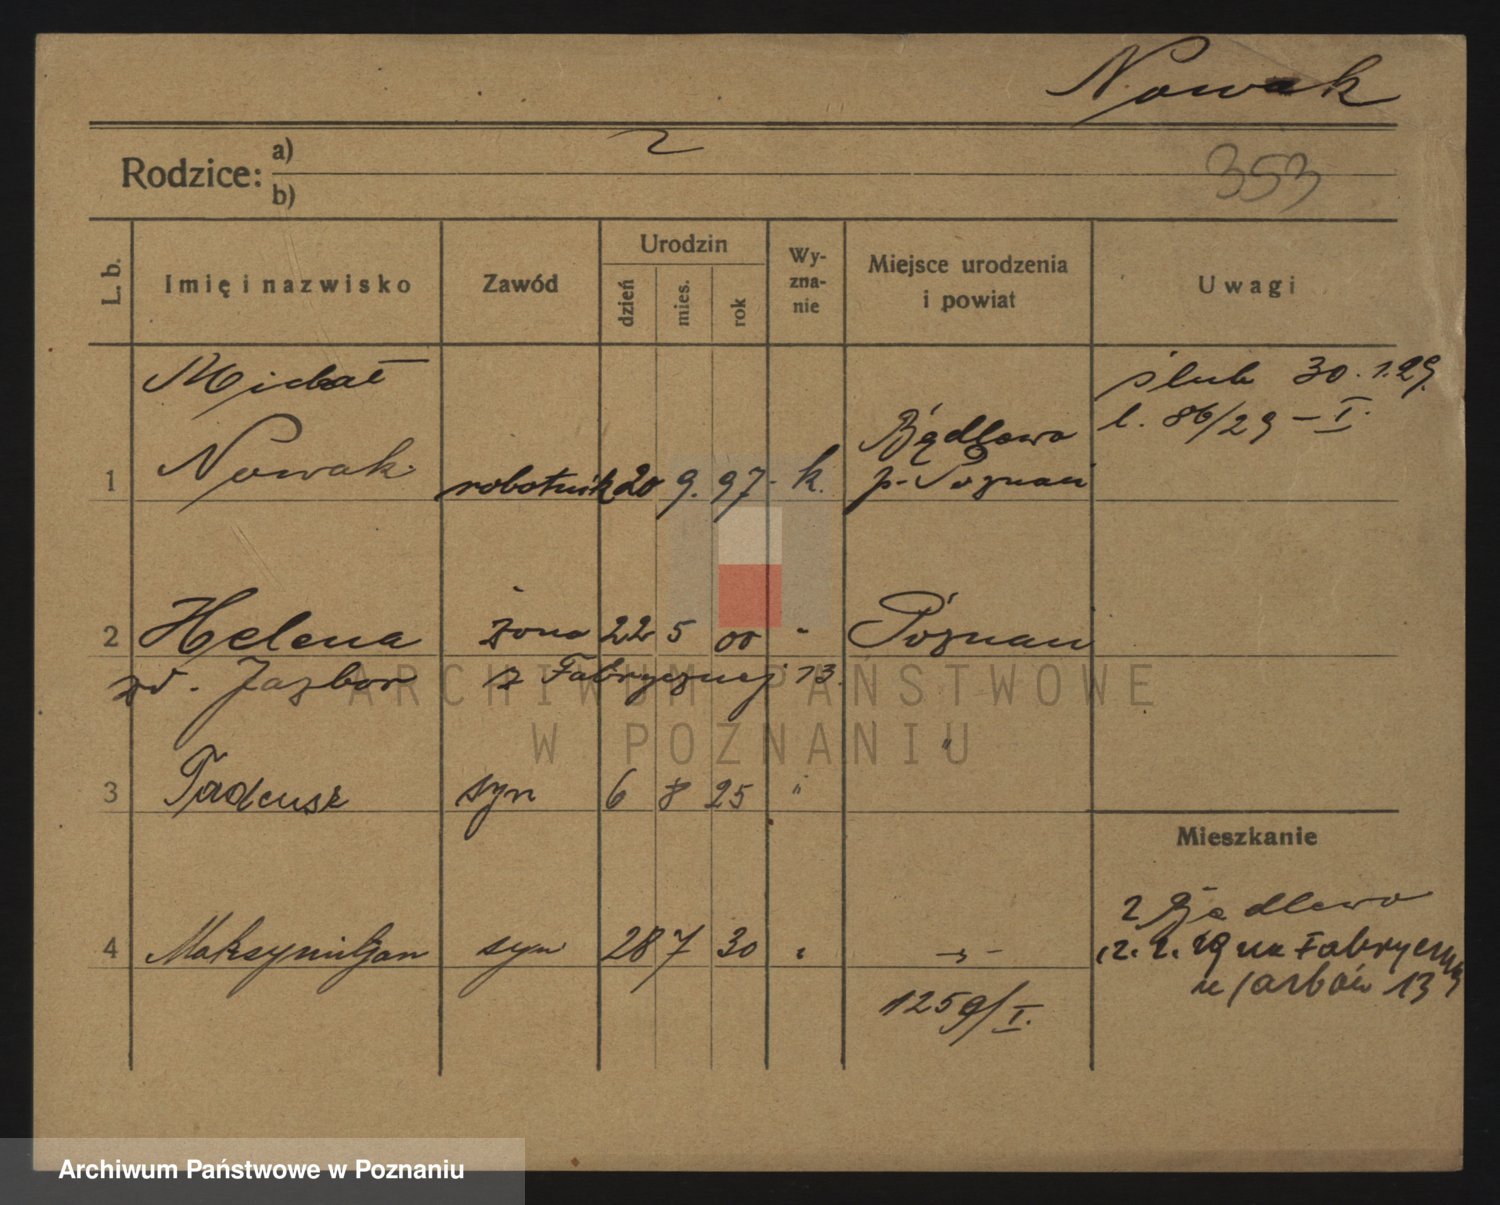 Nowak
2
Rodzice: a)
353
b)
L. b.
Imię i nazwisko
Zawód
Urodzin
dzień
mies.
rok
Wy-
zna-
nie
Miejsce urodzenia
i powiat
Uwagi
Michał
ślub 30.1.29.
l. 86/29 – I.
1 Nowak robotnik 20 9. 97 - k.
Bądlewo
p. Poznań
2 Helena żona 22 5 00 " Poznań
zd. Jazbor z Fabrycznej 13.
3 Tadeusz syn 6 8 25 " "
Mieszkanie
4 Maksymiljan syn 28 7 30 "
1259/I.
z Bądlewo
12. 2. 29 na Fabryczną
u Jazbor 13
ARCHIWUM PAŃSTWOWE
W POZNANIU
Archiwum Państwowe w Poznaniu